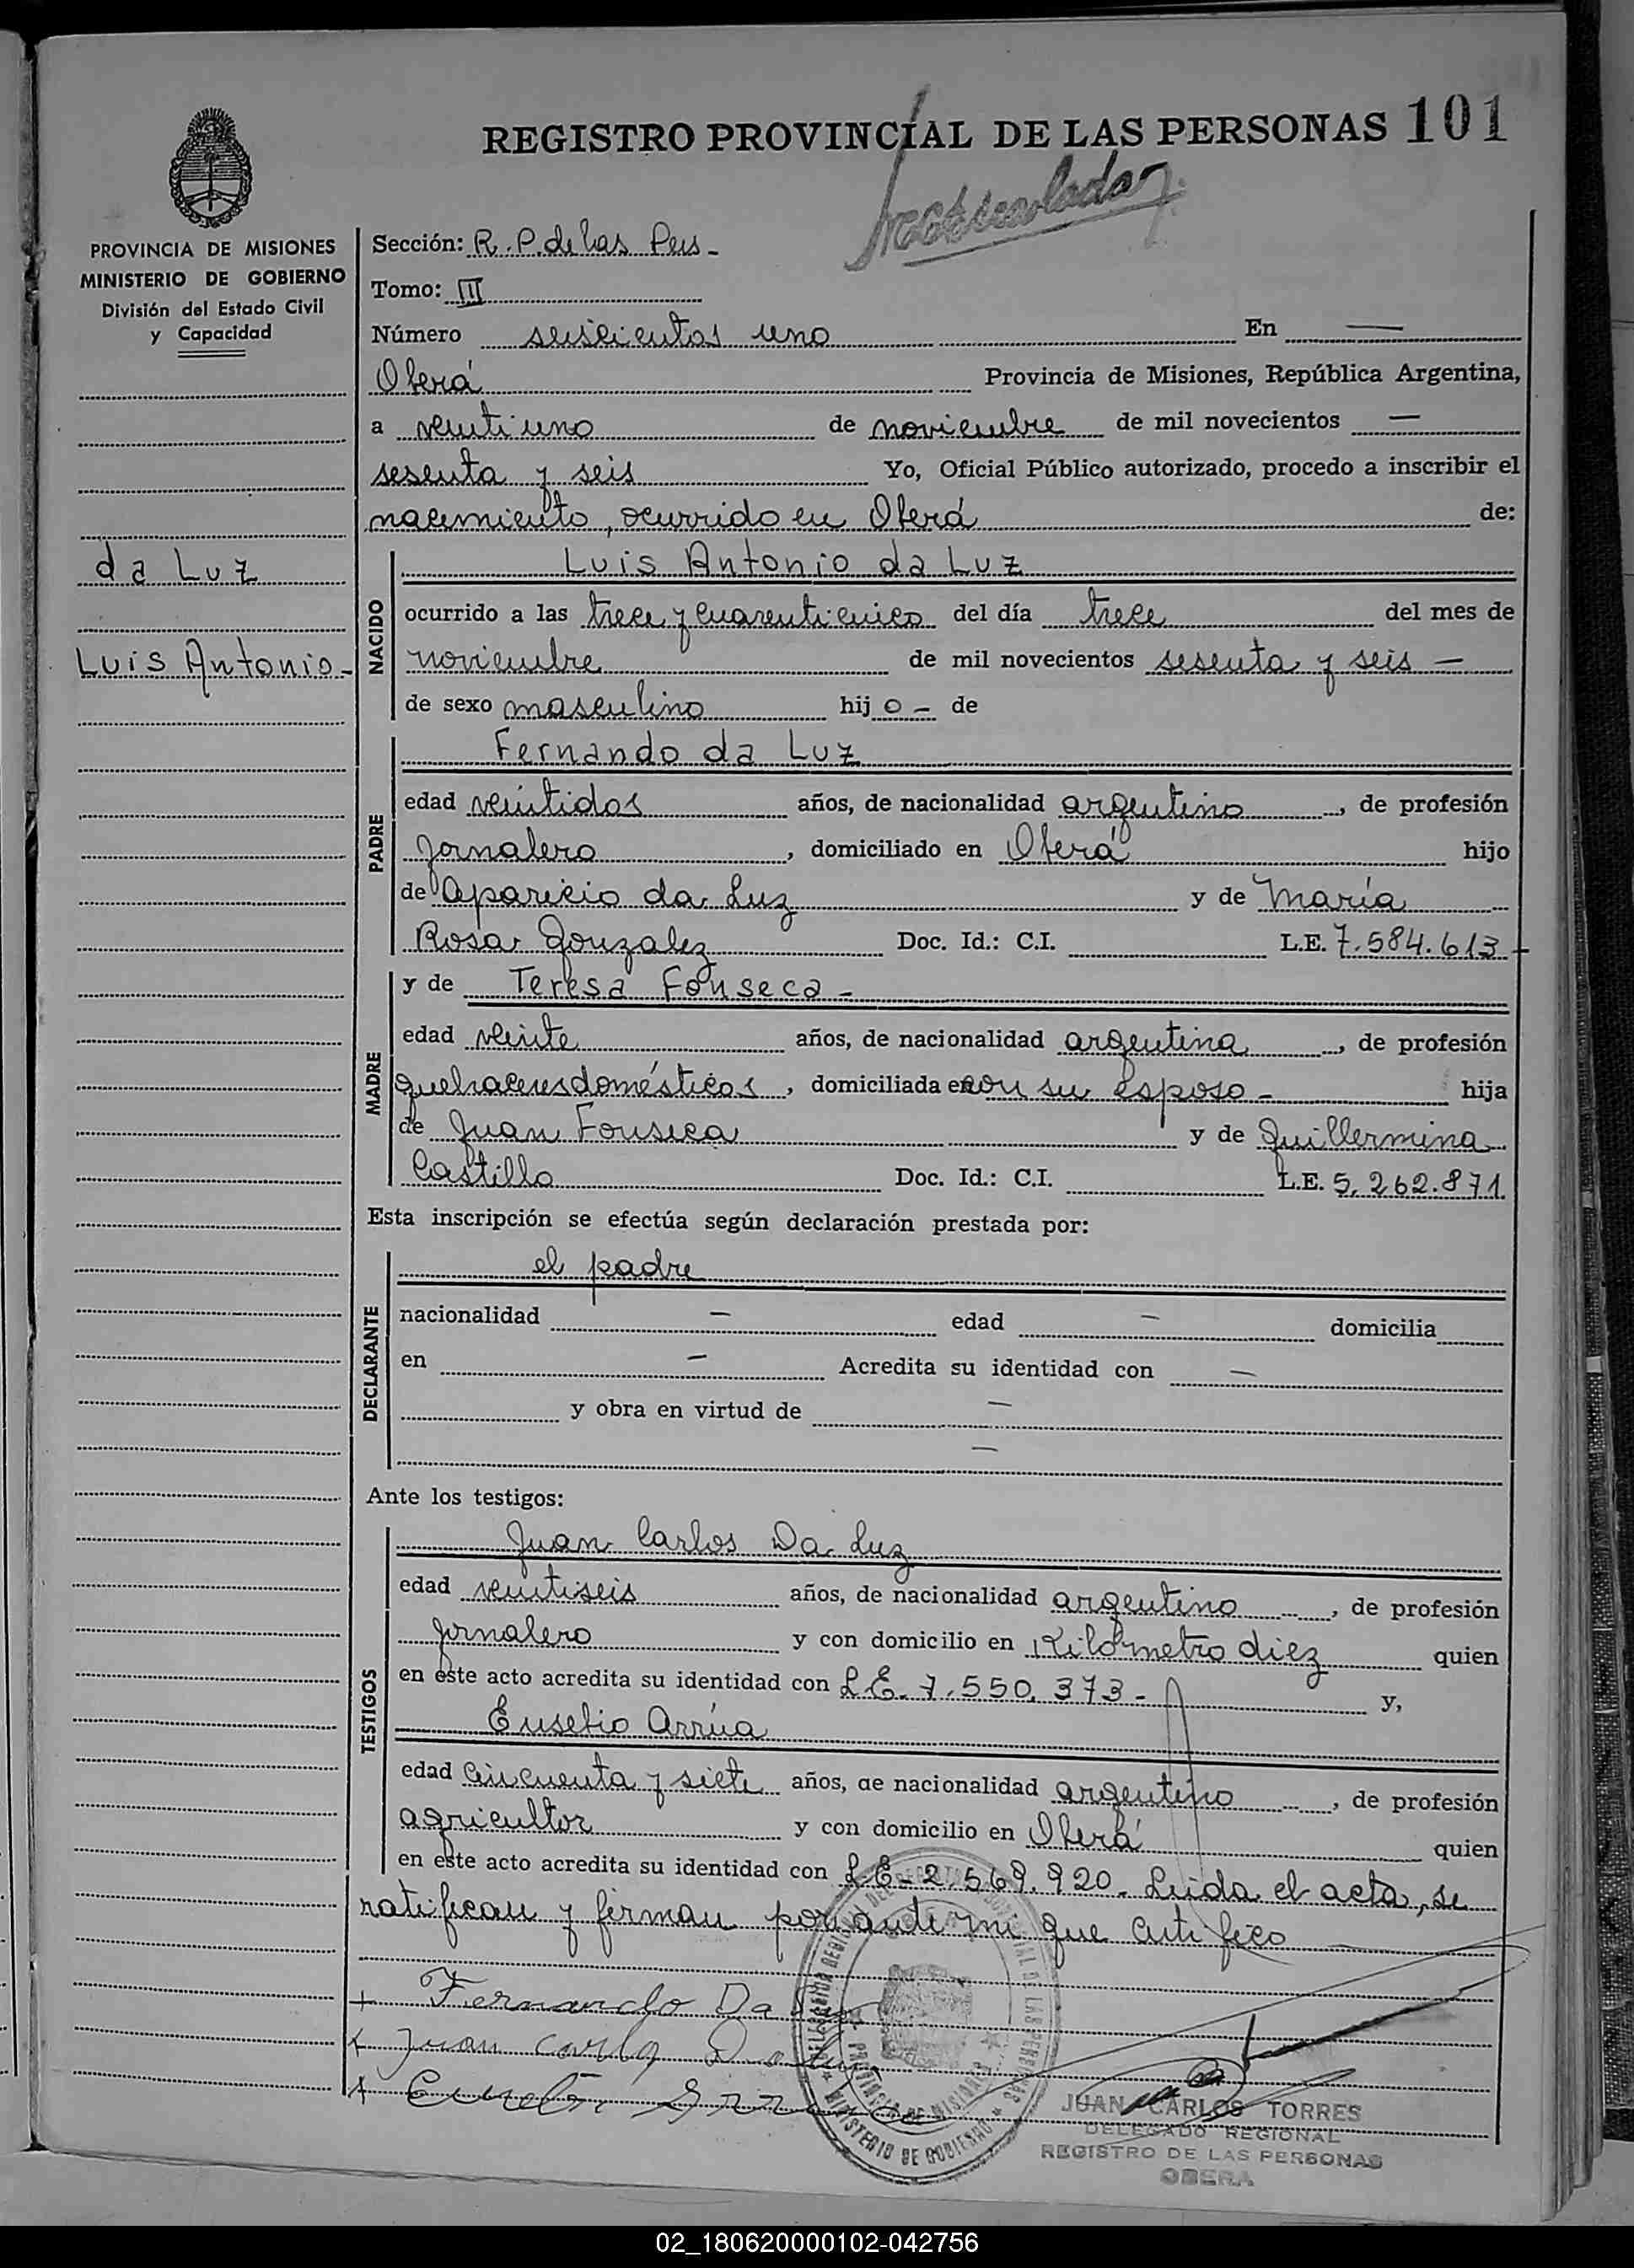 REGISTRO PROVINCIAL DE LAS PERSONAS 101
PROVINCIA DE MISIONES
MINISTERIO DE GOBIERNO
División del Estado Civil
y Capacidad
da Luz
Luis Antonio-
Sección: R.P. de las Pers -
Tomo: III
Número seiscientos uno En —
Oberá Provincia de Misiones, República Argentina,
a veintiuno de noviembre de mil novecientos —
sesenta y seis Yo, Oficial Público autorizado, procedo a inscribir el
nacimiento, ocurrido en Oberá de:
NACIDO
Luis Antonio da Luz
ocurrido a las trece y cuarenticinco del día trece del mes de
noviembre de mil novecientos sesenta y seis —
de sexo masculino hijo - de
PADRE
Fernando da Luz
edad veintidos años, de nacionalidad argentino, de profesión
jornalero, domiciliado en Oberá hijo
de Aparicio da Luz y de María
Rosa Gonzalez Doc. Id.: C.I. L.E. 7.584.613-
MADRE
y de Teresa Fonseca -
edad veinte años, de nacionalidad argentina, de profesión
quehaceres domésticos, domiciliada en con su esposo - hija
de Juan Fonseca y de Guillermina
Castillo Doc. Id.: C.I. L.E. 5.262.871
Esta inscripción se efectúa según declaración prestada por:
DECLARANTE
el padre
nacionalidad — edad — domicilia
en — Acredita su identidad con —
y obra en virtud de —
—
Ante los testigos:
TESTIGOS
Juan Carlos Da Luz
edad veintiseis años, de nacionalidad argentino, de profesión
jornalero y con domicilio en Kilómetro diez quien
en este acto acredita su identidad con L.E. 7.550.373- y,
Eusebio Arrúa
edad cincuenta y siete años, de nacionalidad argentino, de profesión
agricultor y con domicilio en Oberá quien
en este acto acredita su identidad con L.E- 2.569.920. Leida el acta, se
ratifican y firman por ante mi que certifico
+ Fernando Da Luz
+ Juan Carlo Da Luz
+
MINISTERIO DE GOBIERNO
PROVINCIA DE MISIONES
JUAN CARLOS TORRES
DELEGADO REGIONAL
REGISTRO DE LAS PERSONAS
OBERA
02_180620000102-042756